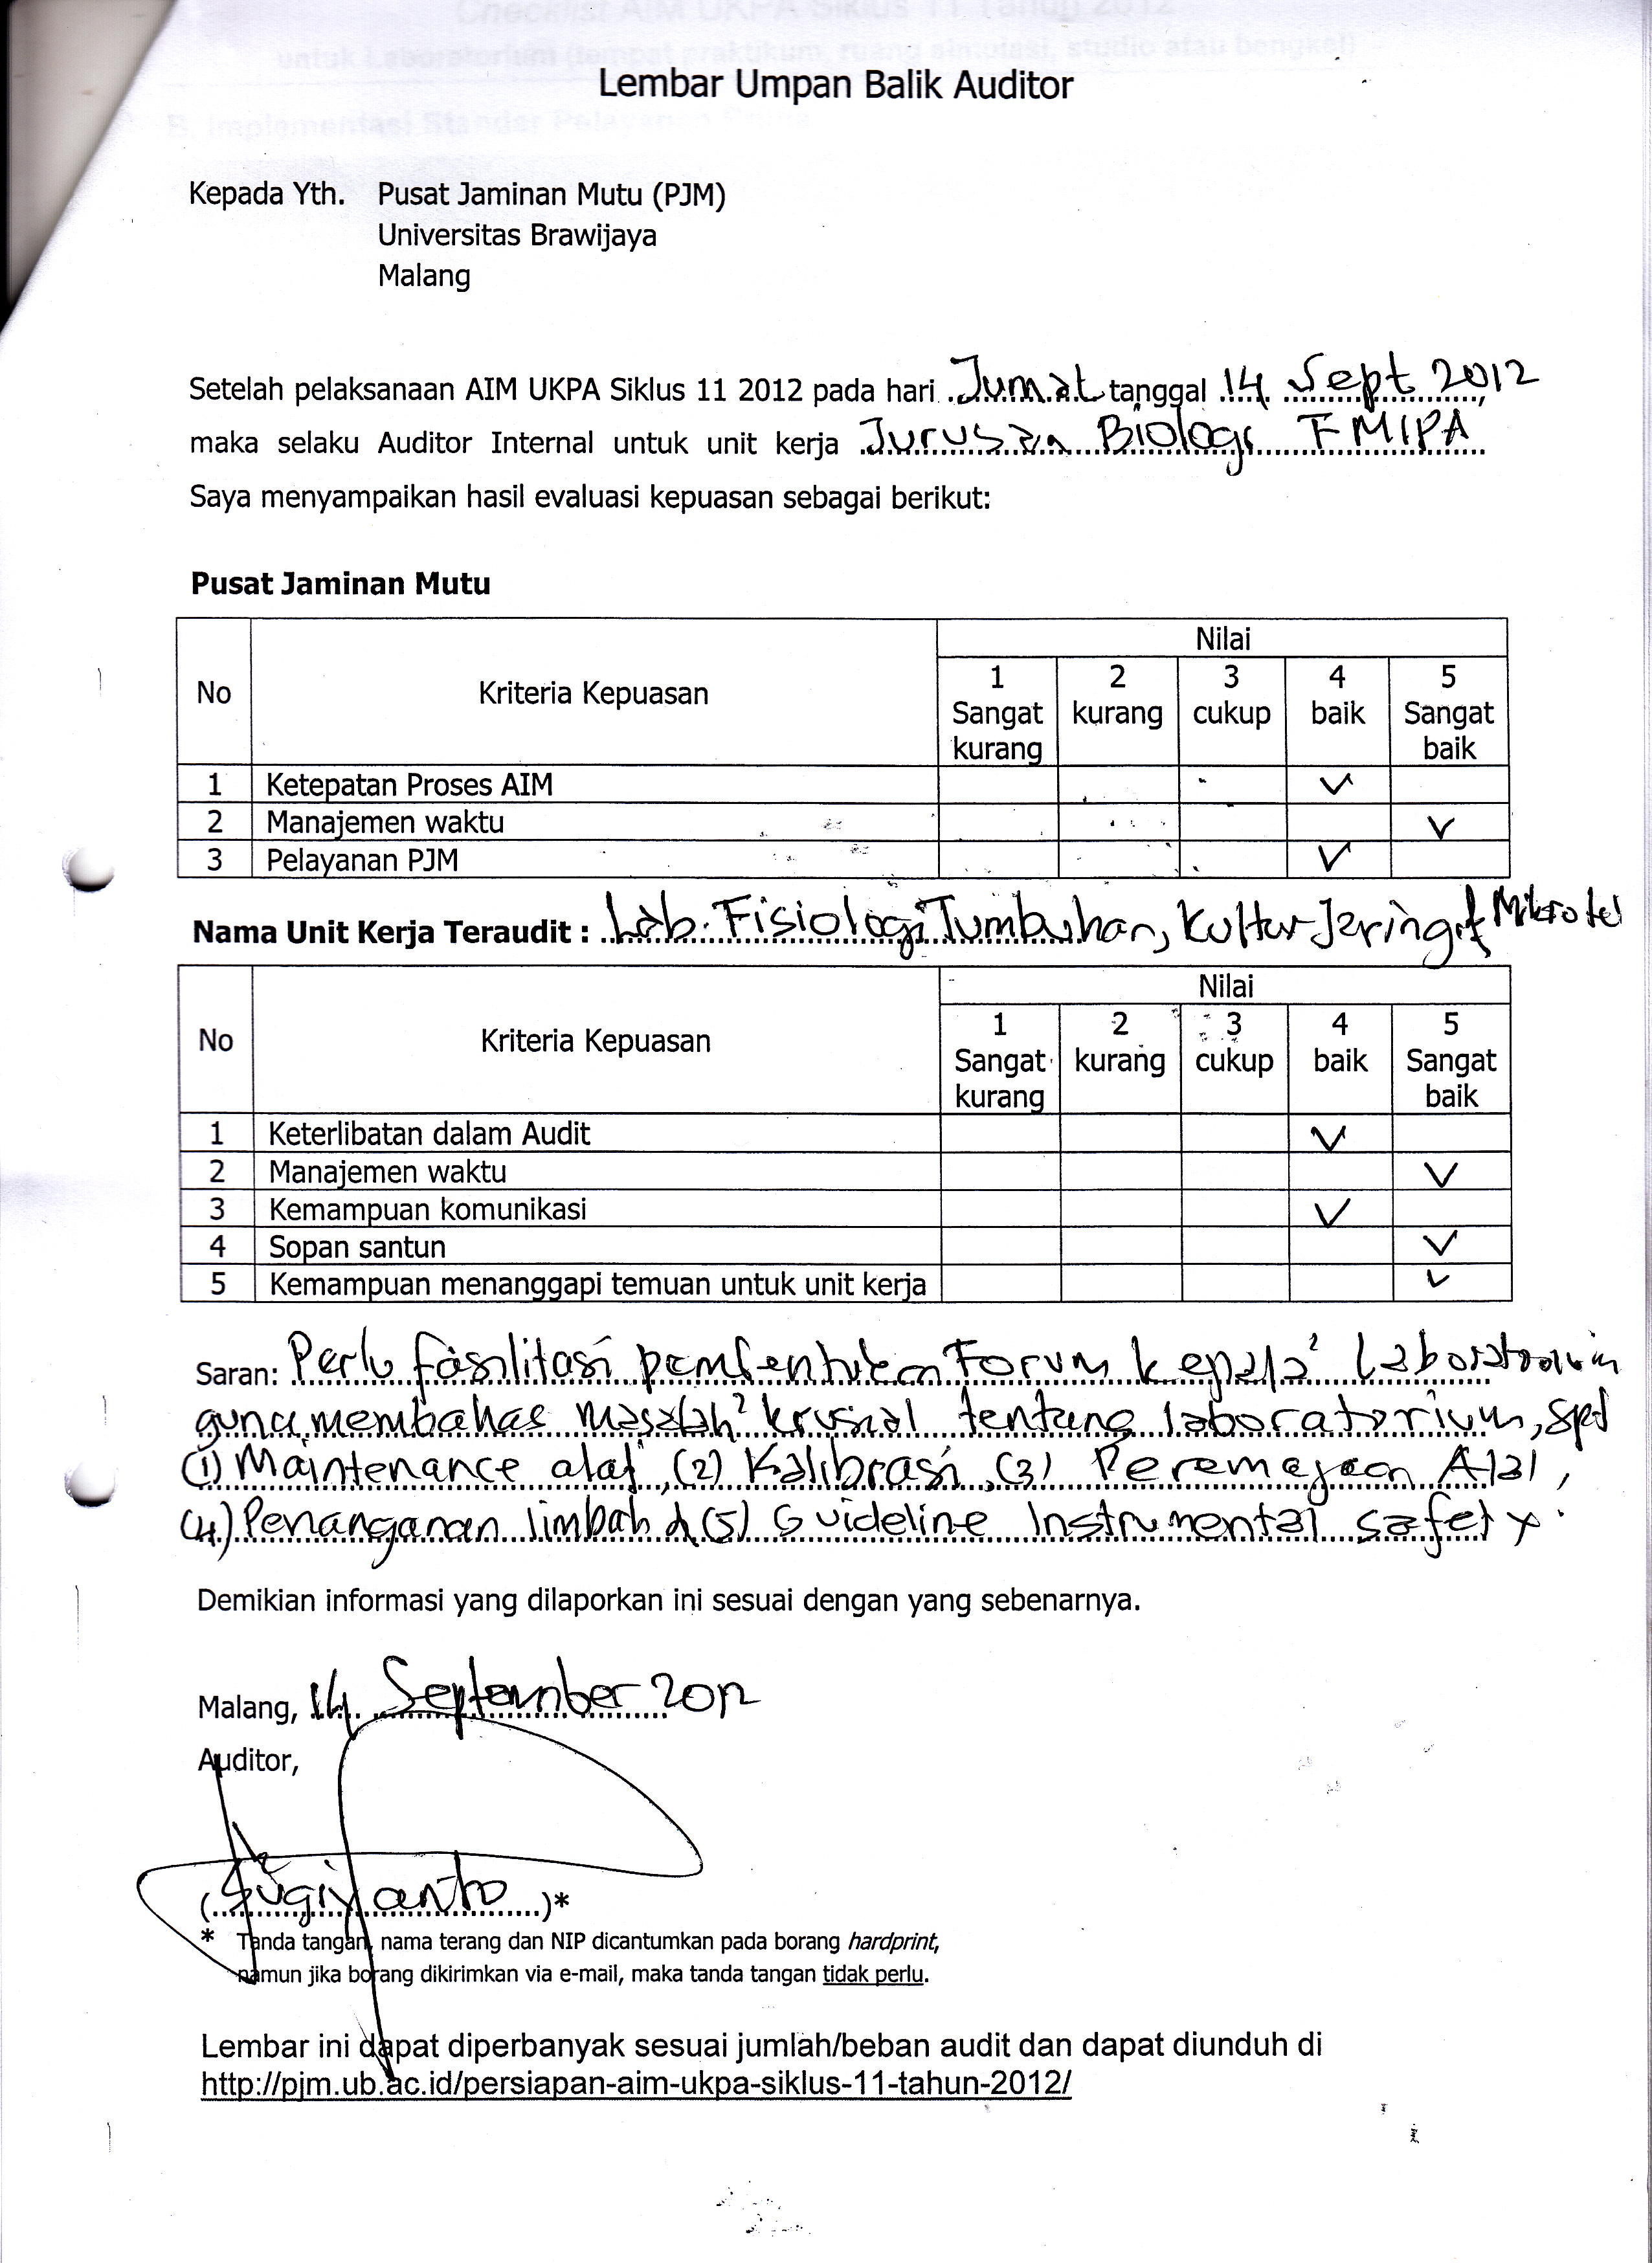 Checklist AIM UKPA Siklus 11 Tahun 2012
untuk Laboratorium (tempat praktikum, ruang simulasi, studio atau bengkel)
Lembar Umpan Balik Auditor
B. Implementasi Standar Pelayanan
Kepada Yth. Pusat Jaminan Mutu (PJM)
Universitas Brawijaya
Malang
Setelah pelaksanaan AIM UKPA Siklus 11 2012 pada hari Jumat tanggal 14 Sept 2012,
maka selaku Auditor Internal untuk unit kerja Jurusan Biologi FMIPA
Saya menyampaikan hasil evaluasi kepuasan sebagai berikut:
Pusat Jaminan Mutu
No Kriteria Kepuasan Nilai
1 2 3 4 5
Sangat kurang cukup baik Sangat
kurang baik
1 Ketepatan Proses AIM ✓
2 Manajemen waktu ✓
3 Pelayanan PJM ✓
Nama Unit Kerja Teraudit : Lab. Fisiologi Tumbuhan, Kultur Jaringan
No Kriteria Kepuasan Nilai
1 2 3 4 5
Sangat kurang cukup baik Sangat
kurang baik
1 Keterlibatan dalam Audit ✓
2 Manajemen waktu ✓
3 Kemampuan komunikasi ✓
4 Sopan santun ✓
5 Kemampuan menanggapi temuan untuk unit kerja ✓
Saran: Perlu fasilitasi pembentukan Forum kepala² Laboratorium
guna membahas masalah² krusial tentang laboratorium, spt
(1) Maintenance alat, (2) Kalibrasi, (3) Peremajaan Alat,
(4) Penanganan limbah & (5) Guideline Instrumental safety.
Demikian informasi yang dilaporkan ini sesuai dengan yang sebenarnya.
Malang, 14 September 2012
Auditor,
(Sugiyanto)*
* Tanda tangan, nama terang dan NIP dicantumkan pada borang hardprint,
namun jika borang dikirimkan via e-mail, maka tanda tangan tidak perlu.
Lembar ini dapat diperbanyak sesuai jumlah/beban audit dan dapat diunduh di
http://pjm.ub.ac.id/persiapan-aim-ukpa-siklus-11-tahun-2012/